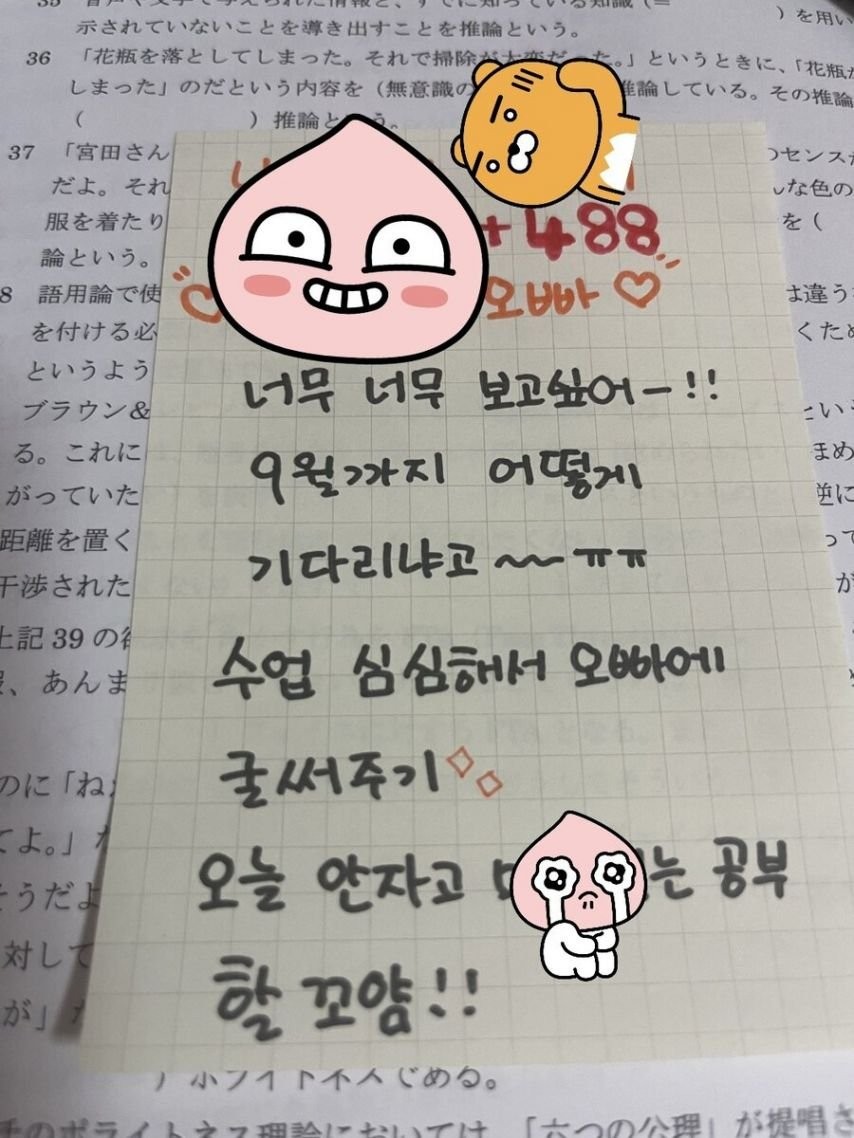 35
示されていないことを導き出すことを推論という。
36 「花瓶を落としてしまった。それで掃除が大変だった。」というときに、「花瓶が
しまった」のだという内容を（無意識の 推論している。その推論
（ ）推論という。
37 「宮田さん のセンスが
だよ。それ んな色の
服を着たり を（
論という。
+488
오빠 ♡
너무 너무 보고싶어ー!!
9월까지 어떻게
기다리냐고 ~~ ㅠㅠ
수업 심심해서 오빠에
글써주기
오늘 안자고 는 공부
할꼬얌!!
8 語用論で使 は違う
を付ける必 くため
というよう
ブラウン& とい
る。これに まめ
がっていた 逆に
距離を置く って
干渉された が
上記 39 の
、あんま
のに「ね
てよ。」
そうだよ
対して
が」
ポライトネス理論においては、「六つの公理」が提唱さ